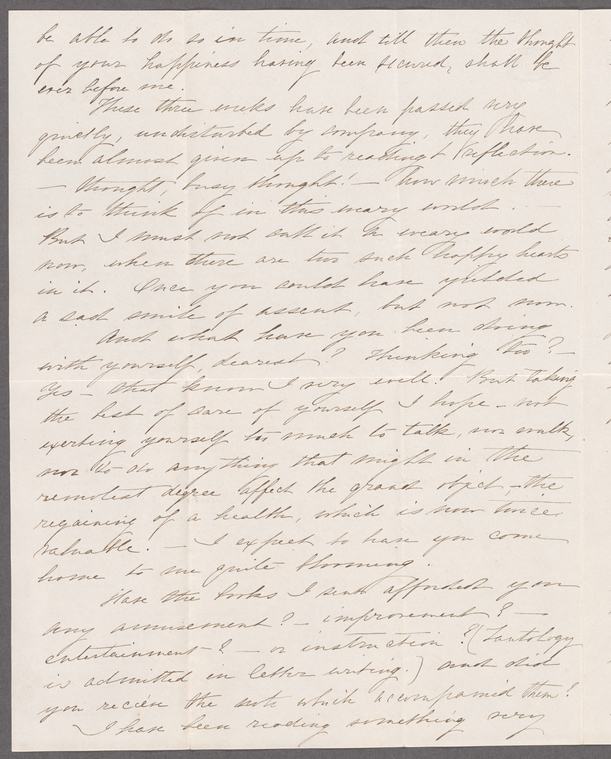 be able to do so in time, and till then the thought
of your happiness having been secured, shall be
ever before me.
These three weeks have been passed very
quietly, undisturbed by company, they have
been almost given up to reading & reflection.
— thought, busy thought! — how much there
is to think of in this weary world
But I must not call it a weary world
now, when there are two such happy hearts
in it. Once you could have yielded
a sad smile of assent, but not now.
And what have you been doing
with yourself, dearest? Thinking too? —
Yes — that know I very well. But taking
the best of care of yourself I hope — not
exerting yourself too much to talk, nor walk,
nor to do anything that might in the
remotest degree affect the grand object, — the
regaining of a health, which is now twice
valuable. — I expect to have you come
home to me quite blooming.
Have the books I sent afforded you
any amusement? — improvement? —
entertainment? — or instruction? (Tautology
is admitted in letter writing.) and did
you recieve the note which accompanied them?
I have been reading something very